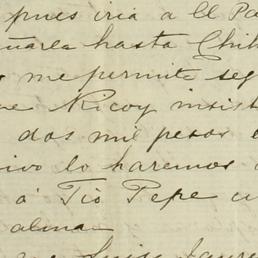 pues iria a El Pa
ñarla hasta Chih
me permite seg
Ricoy insist
dos mil pesos
ivo lo haremos
a' Tio Pepe
alma
Luisa Laure